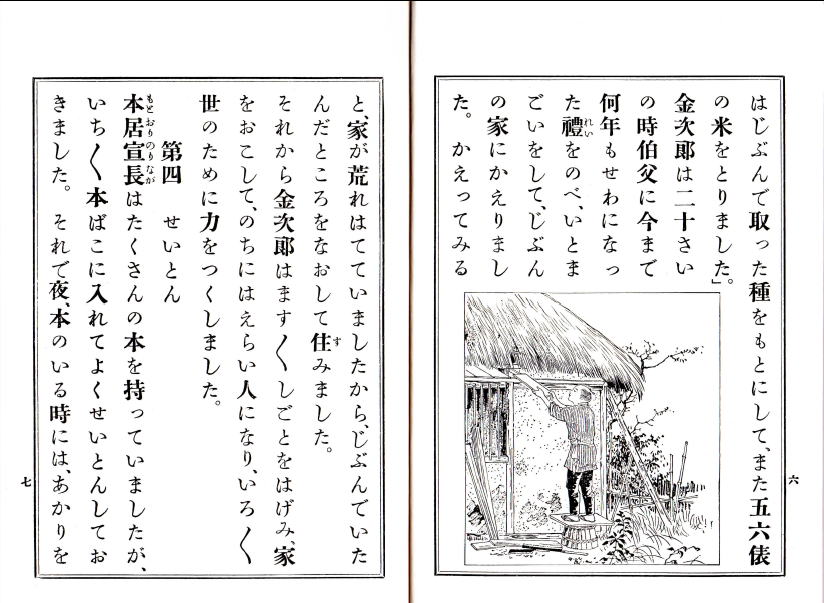 はじぶんで取った種をもとにして、また五六俵
の米をとりました。」
金次郎は二十さい
の時伯父に今まで
何年もせわになっ
た禮をのべ、いとま
ごいをして、じぶん
の家にかえりまし
た。かえってみる
六
と、家が荒れはてていましたから、じぶんでいた
んだところをなおして住みました。
それから金次郎はます〳〵しごとをはげみ、家
をおこして、のちにはえらい人になり、いろ〳〵
世のために力をつくしました。
第四　せいとん
本居宣長はたくさんの本を持っていましたが、
いち〳〵本ばこに入れてよくせいとんしてお
きました。それで夜、本のいる時には、あかりを
七
れい
す
もとおりのりなが